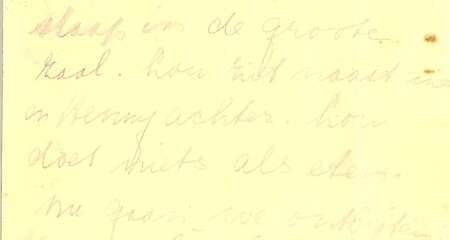 slaap in de groote
zaal. hou zit naast me
en Henny achter. hou
doet niets als eten.
nu gaan we ontbijten